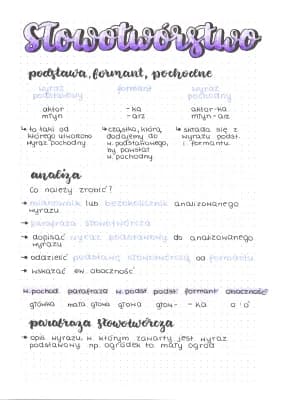 słowotwórstwo
podstawa, formant, pochodne
wyraz podstawowy formant wyraz pochodny
aktor -ka aktor-ka
młyn -arz młyn-arz
→ to taki od którego utworzono wyraz pochodny
→ cząstka, którą dodajemy do w. podstawowego, by powstał w. pochodny
→ składa się z wyrazu podst. i formantu.
analiza
Co należy zrobić?
→ mianownik lub bezokolicznik analizowanego
wyrazu
→ parafraza słowotwórcza
→ dopisać wyraz podstawowy do analizowanego
wyrazu
→ oddzielić podstawę słowotwórczą od formantu
→ wskazać ew. oboczność
w. pochod. parafraza w. podst podst. formant oboczność
główka mała głowa głowa głow- -ka o : ó
parafraza słowotwórcza
→ opis wyrazu, w którym zawarty jest wyraz
podstawowy np. ogródek to mały ogród